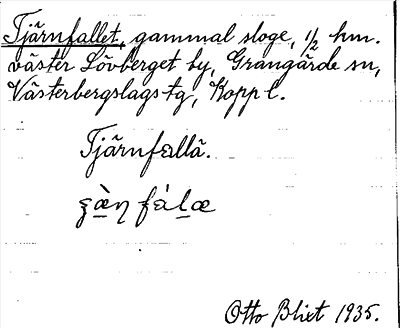 Tjärnfallet, gammal sloge, 1/2 hm.
väster Lövberget by, Grangärde sn,
Västerbergslags tg, Kopp l.
Tjärnfallä.
Otto Blixt 1935.